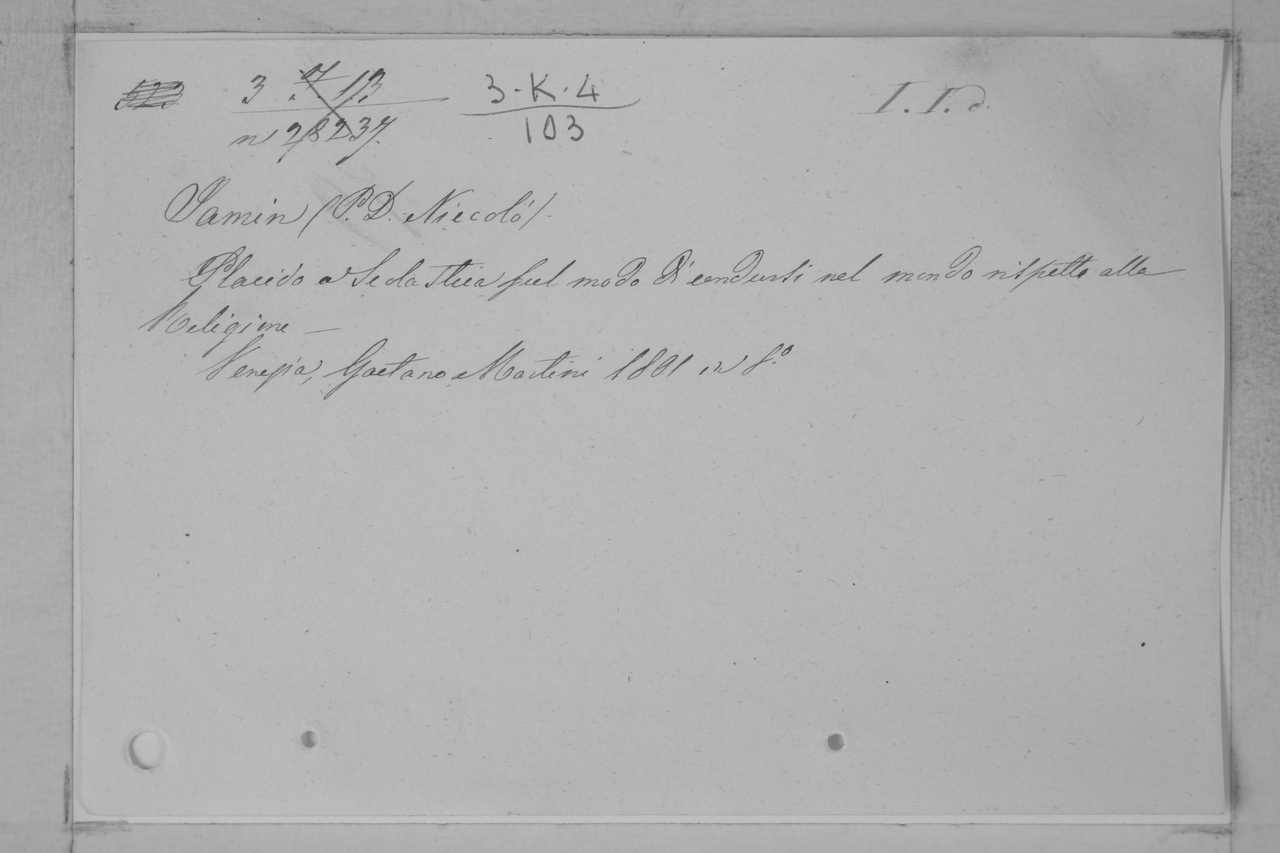 3 7 13 3-K-4 I.I.d.
n 28237. 103
Jamin (P. D. Niccolò).
Placido a Scolastica sul modo di condursi nel mondo rispetto alla
Religione —
Venezia, Gaetano Martini 1801 in 8.º